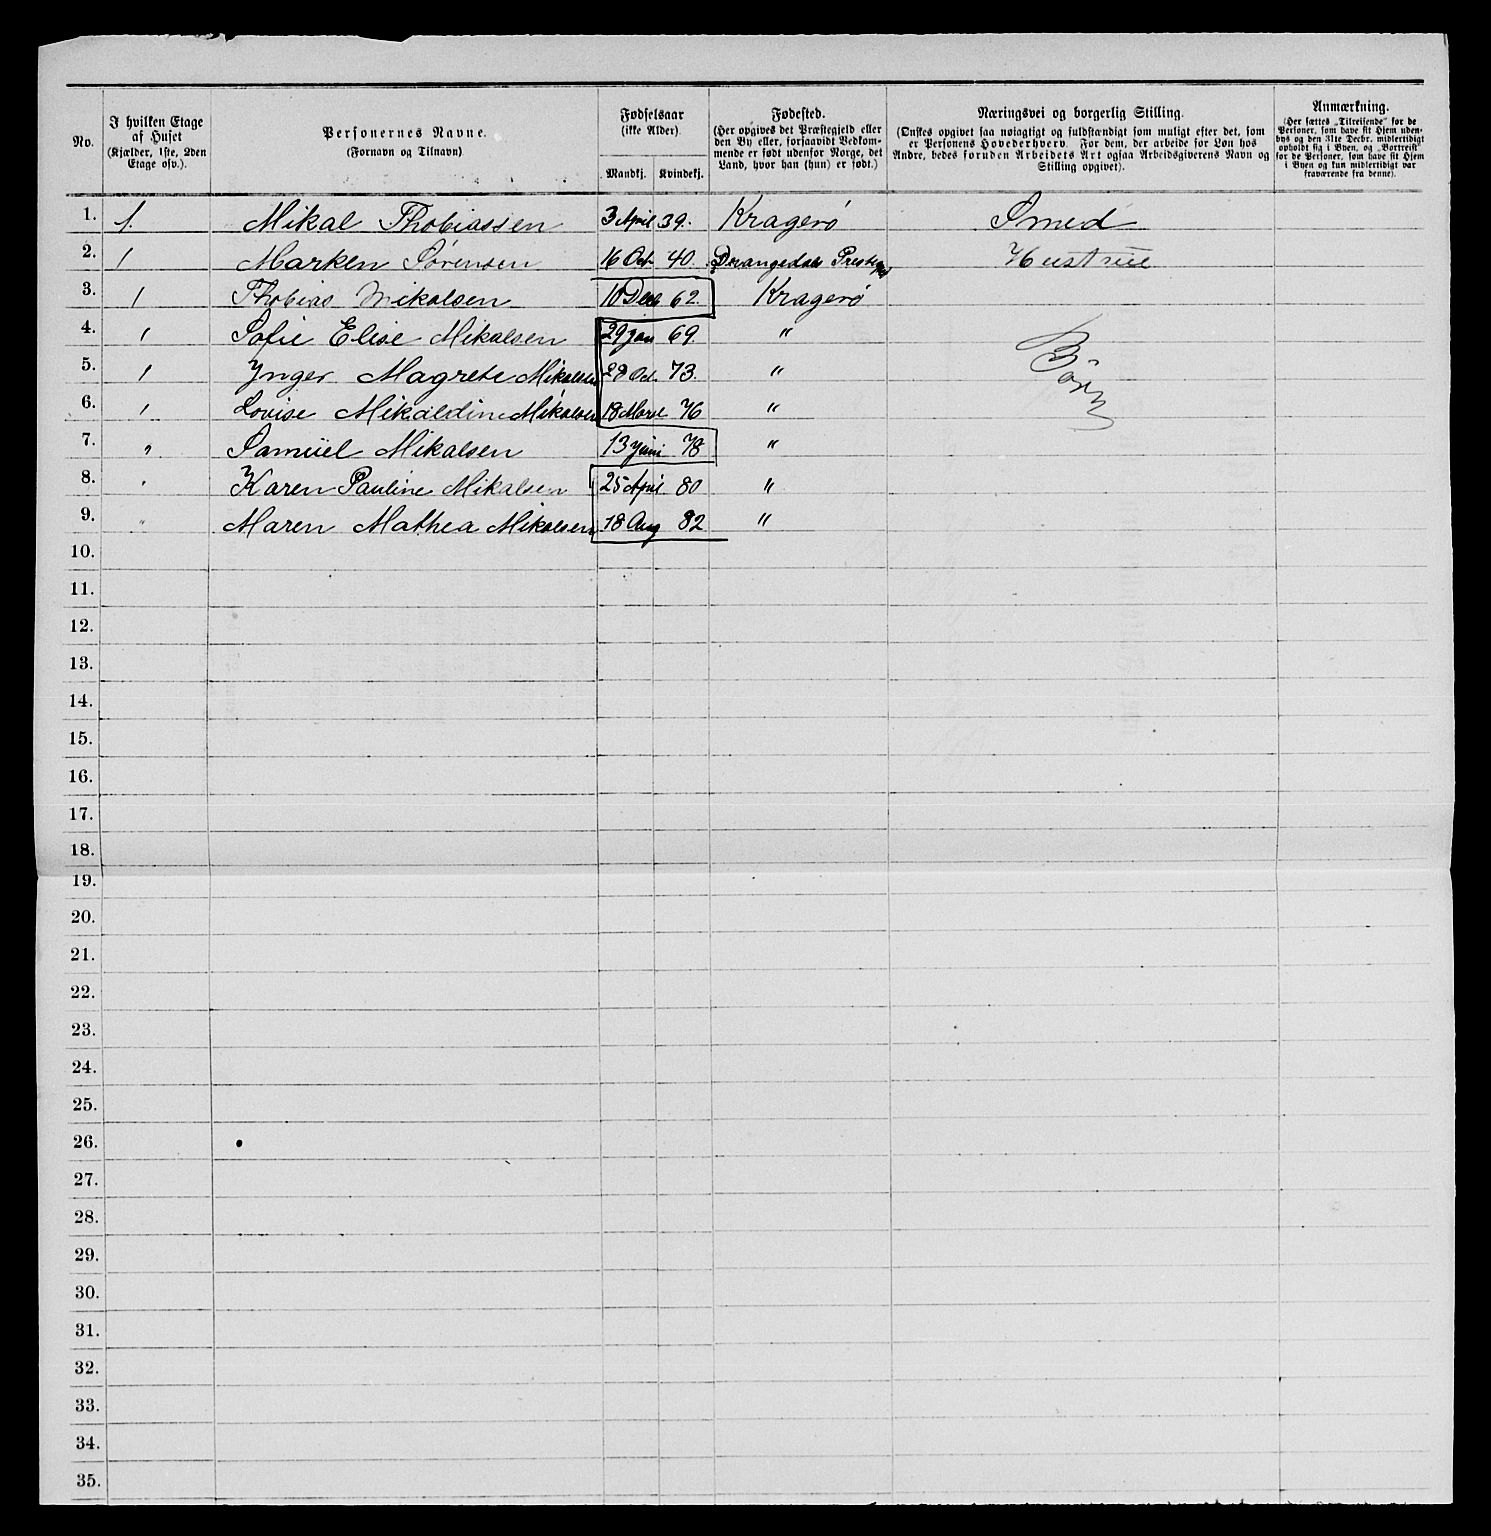 No.
I hvilken Etage af Huset
(Kjælder, 1ste, 2den Etage osv.).
Personernes Navne.
(Fornavn og Tilnavn)
Fødselsaar
(ikke Alder).
Mandkj. Kvindekj.
Fødested.
(Her opgives det Præstegjeld eller den By eller, forsaavidt Vedkommende er født udenfor Norge, det Land, hvor han (hun) er født.)
Næringsvei og borgerlig Stilling.
(Ønskes opgivet saa nøiagtigt og fuldstændigt som muligt efter det, som er Personens Hovederhverv. For dem, der arbeide for Løn hos Andre, bedes foruden Arbeidets Art ogsaa Arbeidsgiverens Navn og Stilling opgivet).
Anmærkning.
(Her sættes „Tilreisende" for de Personer, som have sit Hjem udenbys og den 31te Decbr. midlertidigt opholdt sig i Byen, og „Bortreist" for de Personer, som have sit Hjem i Byen og kun midlertidigt var fraværende fra denne).
1. 1. Mikal Thobiassen 3 April 39. Kragerø Smed
2. 1 Marken Sørensen 16 Oct 40. Drangedals Prestegj Hustrue
3. 1 Thobias Mikalsen 10 Dec 62. Kragerø
4. 1 Sofie Elise Mikalsen 29 jan 69. " Börn
5. 1 Ynger Magrete Mikalsen 28 Oct. 73. "
6. 1 Lovise Mikaldine Mikalsen 18 Marst 76 "
7. " Samüel Mikalsen 13 juni 78 "
8. " Karen Pauline Mikalsen 25 April 80 "
9. " Maren Mathea Mikalsen 18 Aug 82 "
10.
11.
12.
13.
14.
15.
16.
17.
18.
19.
20.
21.
22.
23.
24.
25.
26.
27.
28.
29.
30.
31.
32.
33.
34.
35.